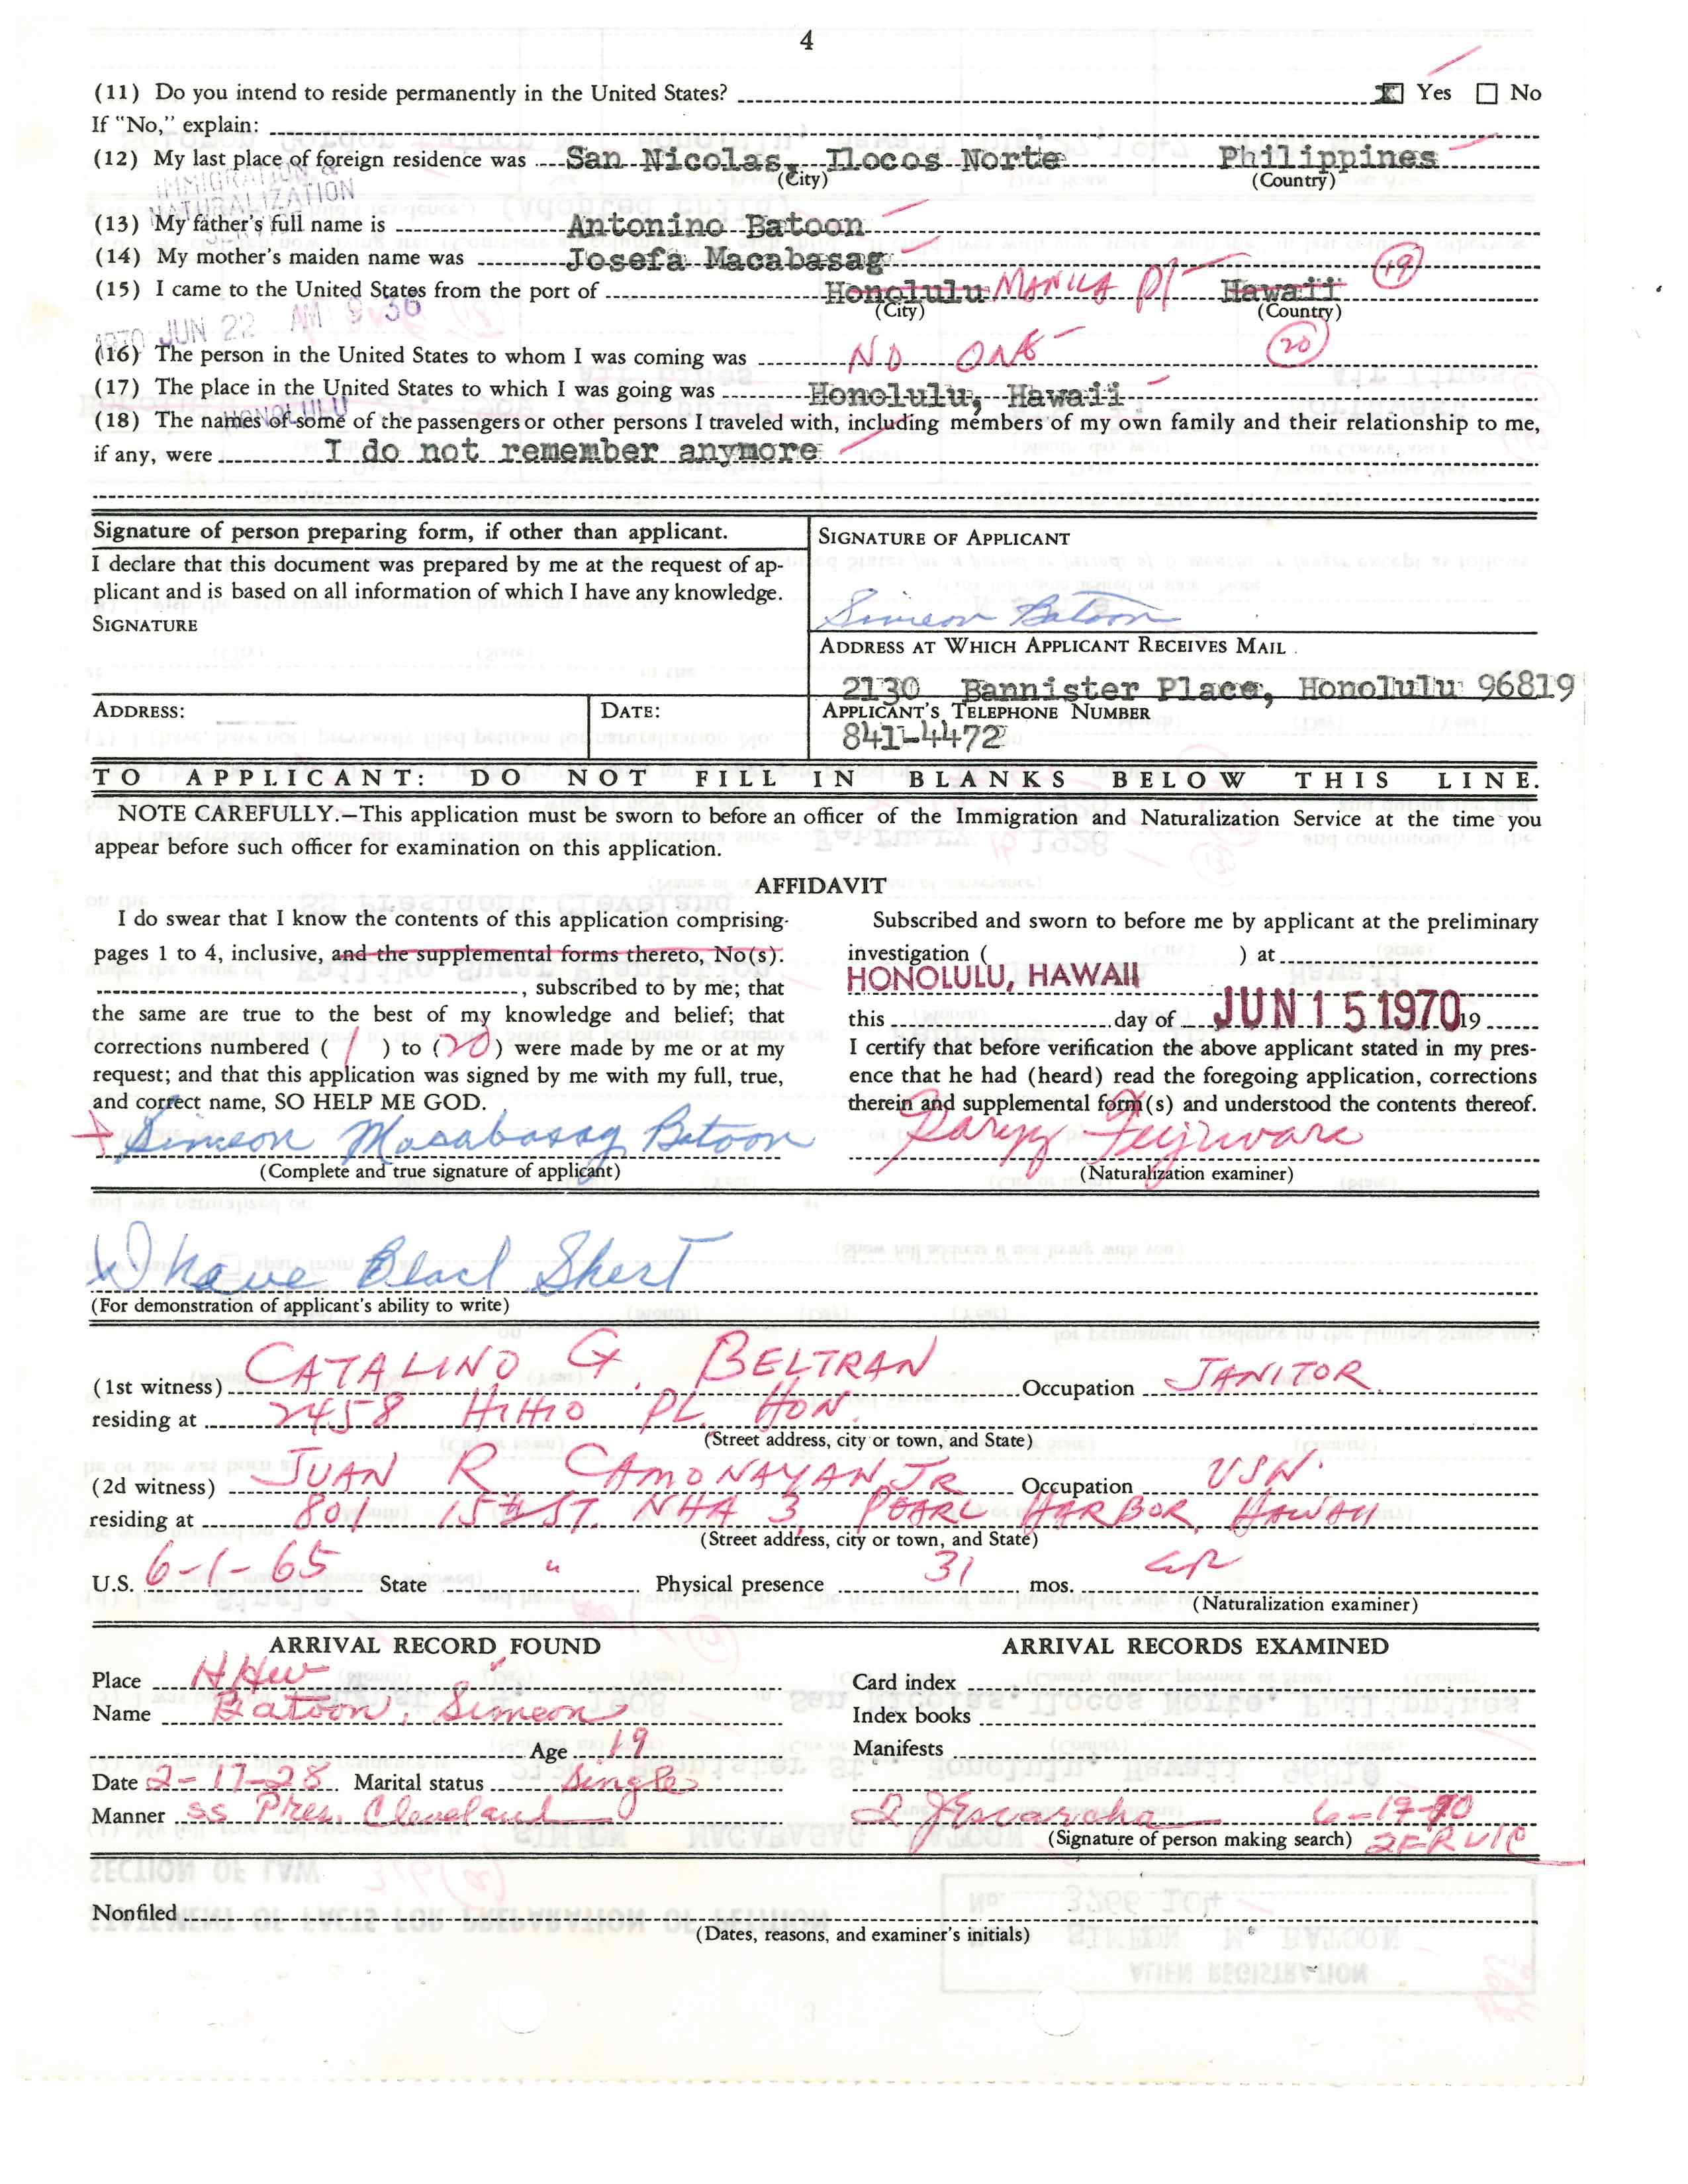 4
(11) Do you intend to reside permanently in the United States? Yes No
If "No," explain:
(12) My last place of foreign residence was San Nicolas, Ilocos Norte Philippines
(City) (Country)
IMMIGRATION &
NATURALIZATION
(13) My father's full name is Antonino Batoon
(14) My mother's maiden name was Josefa Macabasag
(15) I came to the United States from the port of Honolulu MANILA PI Hawaii (19)
(City) (Country)
1970 JUN 22 AM 9 36
(16) The person in the United States to whom I was coming was NO ONE (20)
(17) The place in the United States to which I was going was Honolulu, Hawaii
HONOLULU
(18) The names of some of the passengers or other persons I traveled with, including members of my own family and their relationship to me,
if any, were I do not remember anymore
Signature of person preparing form, if other than applicant.
I declare that this document was prepared by me at the request of ap-
plicant and is based on all information of which I have any knowledge.
SIGNATURE
SIGNATURE OF APPLICANT
Simeon Batoon
ADDRESS AT WHICH APPLICANT RECEIVES MAIL
2130 Bannister Place, Honolulu 96819
ADDRESS: DATE:
APPLICANT'S TELEPHONE NUMBER
841-4472
TO APPLICANT: DO NOT FILL IN BLANKS BELOW THIS LINE.
NOTE CAREFULLY.—This application must be sworn to before an officer of the Immigration and Naturalization Service at the time you
appear before such officer for examination on this application.
AFFIDAVIT
I do swear that I know the contents of this application comprising
pages 1 to 4, inclusive, and the supplemental forms thereto, No(s).
, subscribed to by me; that
the same are true to the best of my knowledge and belief; that
corrections numbered ( 1 ) to ( 20 ) were made by me or at my
request; and that this application was signed by me with my full, true,
and correct name, SO HELP ME GOD.
Simeon Macabasag Batoon
(Complete and true signature of applicant)
Subscribed and sworn to before me by applicant at the preliminary
investigation ( ) at
HONOLULU, HAWAII
this day of JUN 15 1970 19
I certify that before verification the above applicant stated in my pres-
ence that he had (heard) read the foregoing application, corrections
therein and supplemental form(s) and understood the contents thereof.
(Naturalization examiner)
I have Blacl Shert
(For demonstration of applicant's ability to write)
(1st witness) CATALINO G. BELTRAN Occupation JANITOR
residing at 2458 HIHIO PL. HON.
(Street address, city or town, and State)
(2d witness) JUAN R CAMONAYAN JR Occupation USN.
residing at 801 15th ST. NHA 3 PEARL HARBOR, HAWAII
(Street address, city or town, and State)
U.S. 6-1-65 State " Physical presence 31 mos.
(Naturalization examiner)
ARRIVAL RECORD FOUND
Place HHW
Name Batoon, Simeon
Age 19
Date 2-17-28 Marital status Single
Manner SS Pres. Cleveland
ARRIVAL RECORDS EXAMINED
Card index
Index books
Manifests
6-19-70
(Signature of person making search)
Nonfiled
(Dates, reasons, and examiner's initials)